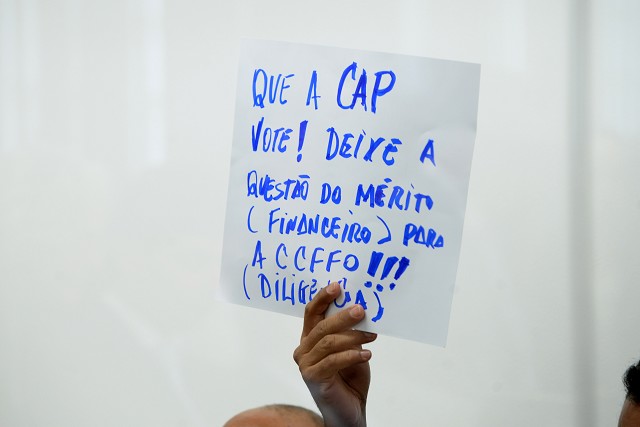 QUE A CAP
VOTE! DEIXE A
QUESTÃO DO MÉRITO
(FINANCEIRO) PARA
A CCFFO!!!